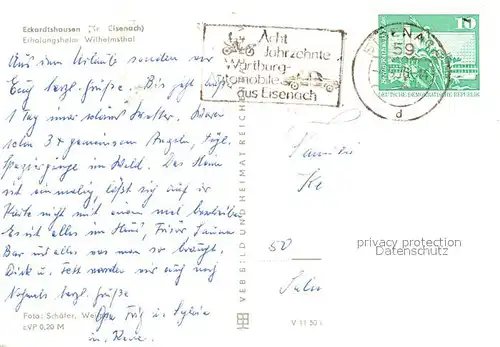 Eckardtshausen (Kr. Eisenach)
Erholungsheim Wilhelmsthal
Aus dem Urlaube senden wir
Euch herzl. Grüße. Bis jetzt
1 Tag nur schönes Wetter. Waren
schon 3 x gemeinsam Angeln, tägl.
Spaziergänge im Wald. Das Heim
ist einmalig, läßt sich auf der
Karte nicht mit einem mal beschreiben
Es ist alles im Haus, Frisör Sauna
Bar und alles was man so braucht.
Dick u. Fett werden wir auch noch
Nochmals herzl. Grüße
Opa u. Sylvia
Foto: Schäfer,
EVP 0,20 M
VEB BILD UND HEIMAT REICHENB
Acht
Jahrzehnte
Wartburg-
Automobile
aus Eisenach
EISENA
59
d
10
DEUTSCHE DEMOKRATISCHE REPUBLIK
Familie
50
privacy protection
Datenschutz
V 11 50